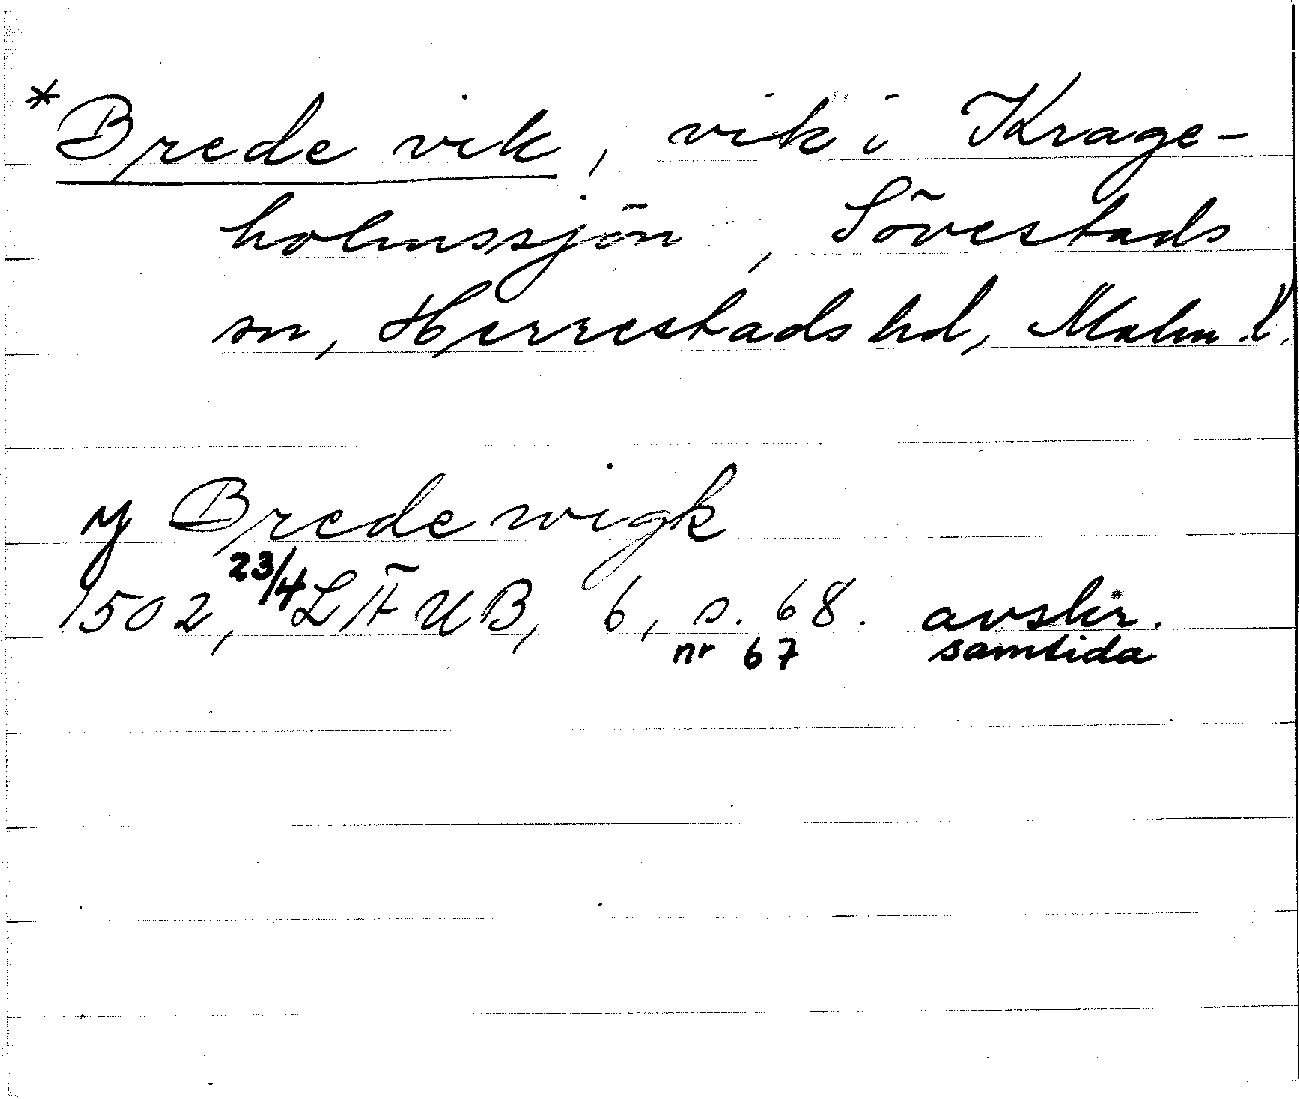 *Brede vik, vik i Krage-
holmssjön, Sövestads
sn, Herrestads hd, Malm.l.
y Brede wigk
1502, 23/4 LÄUB, 6, s. 68. avskr.
nr 67 samtida